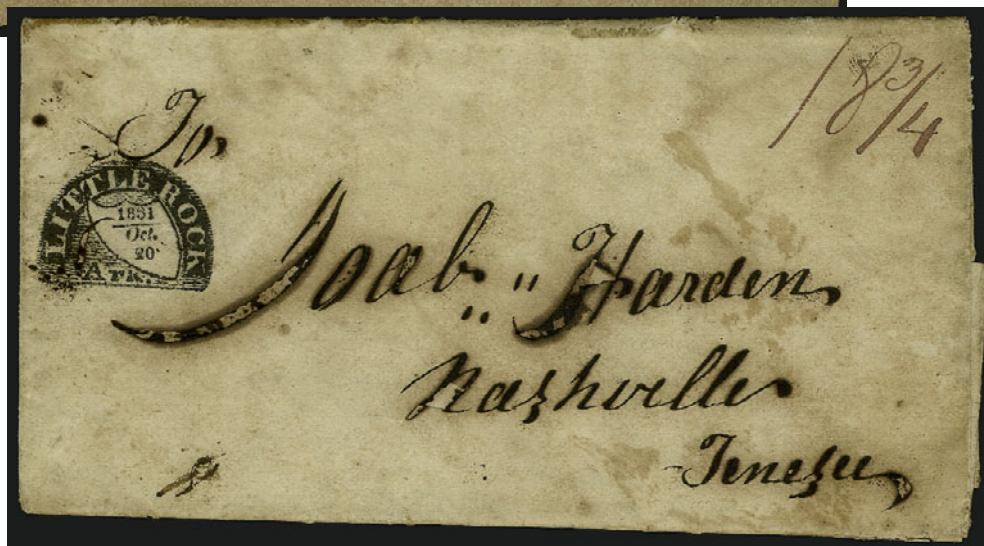 18 3/4
To,
LITTLE ROCK
1831
Oct.
20
ARK.
Joab Harden
Nashville
Tenessee